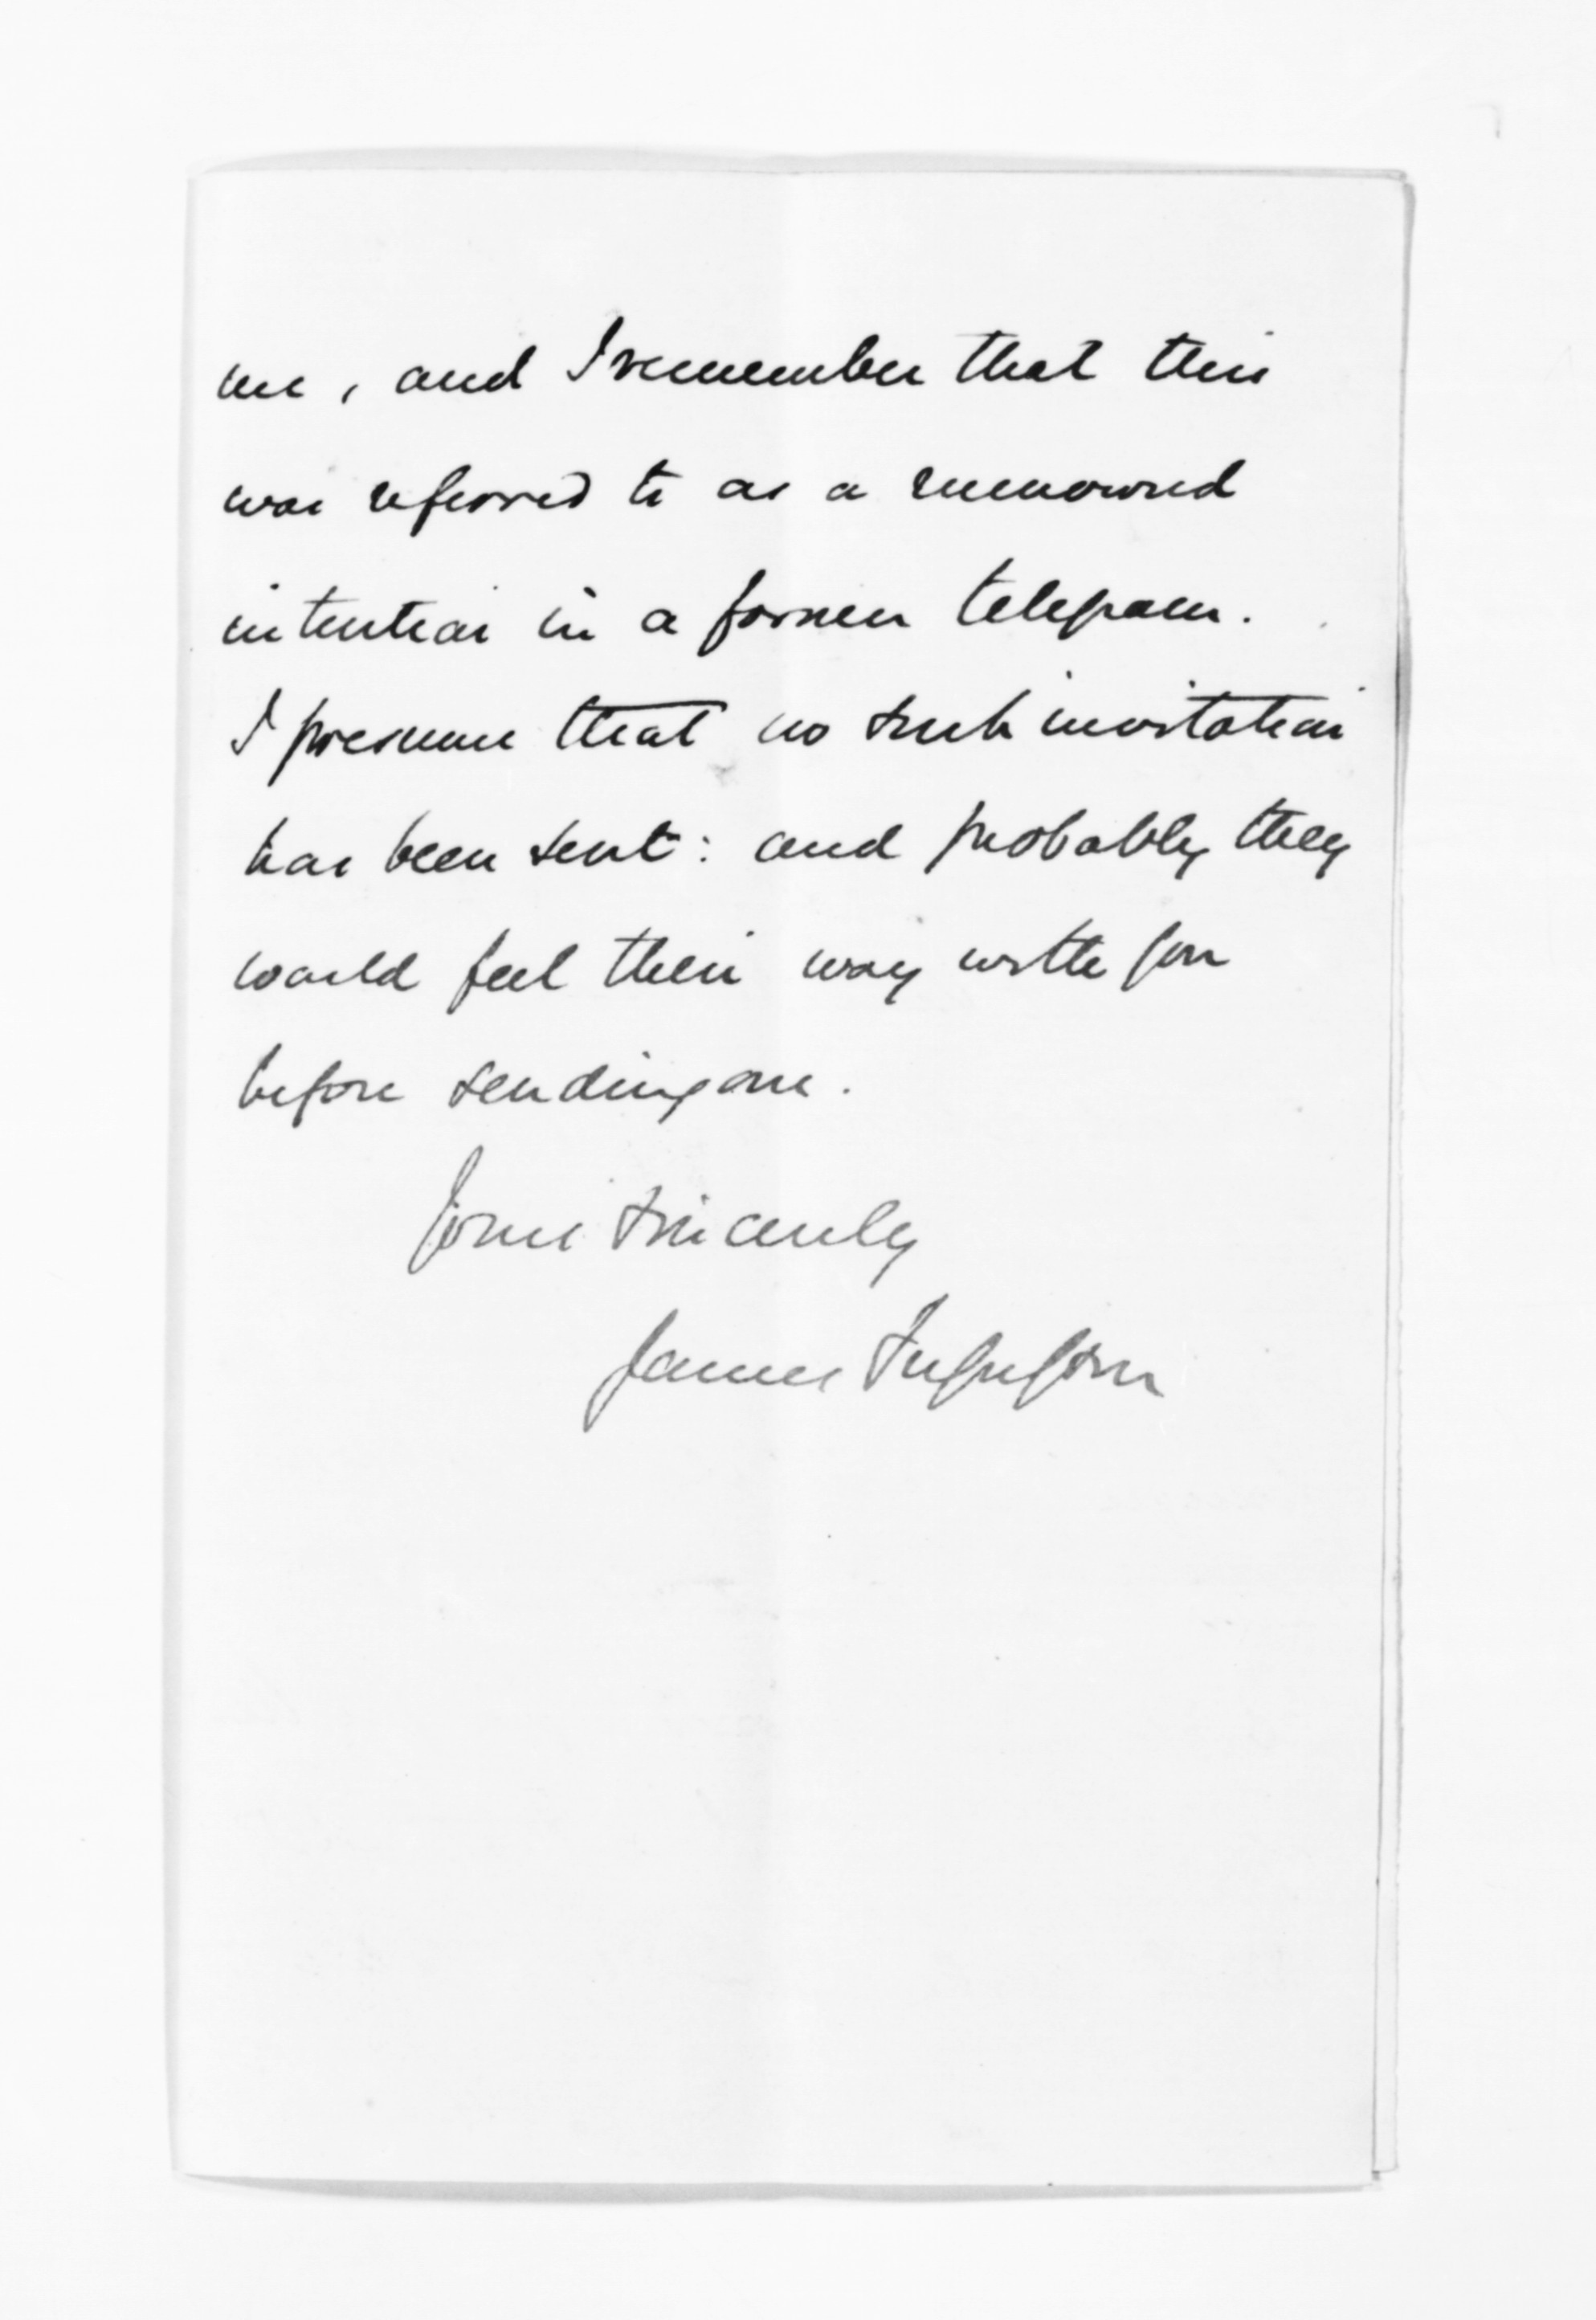 me, and I remember that this
was referred to as a rumoured
intention in a former telegram.
I presume that no such invitation
has been sent: and probably they
would feel their way with you
before sending one.
Yours sincerely
James Fergusson